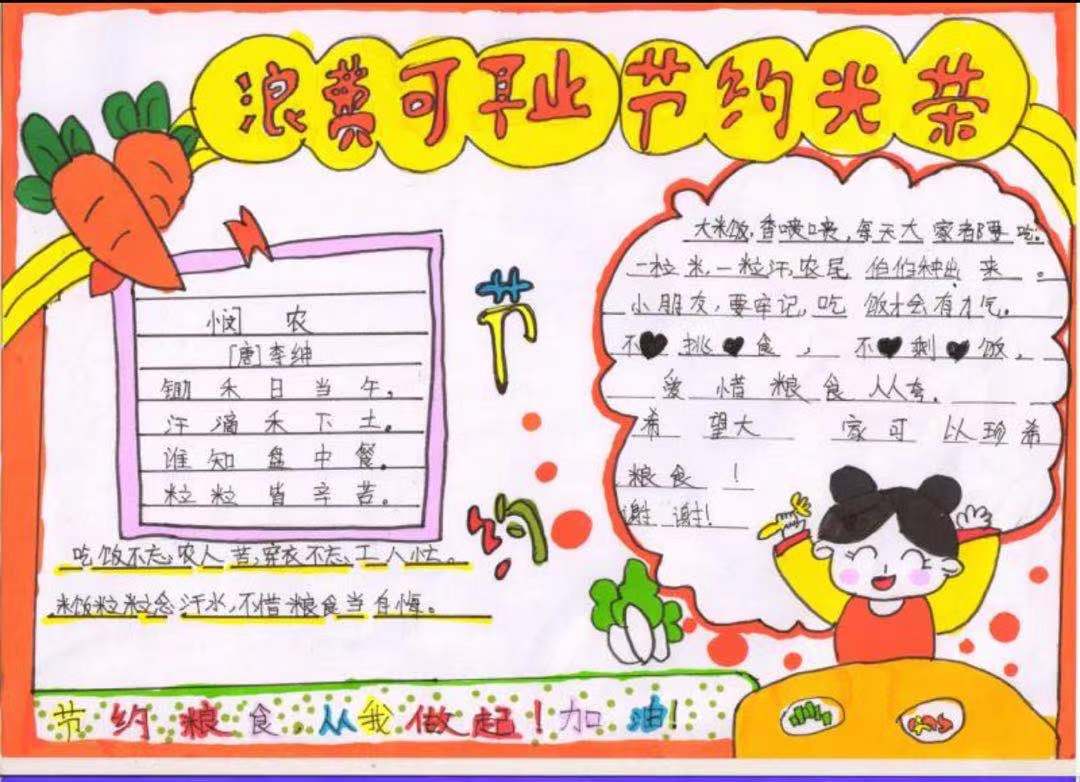 浪费可耻节约光荣
悯农
[唐]李绅
锄禾日当午,
汗滴禾下土。
谁知盘中餐。
粒粒皆辛苦。
吃饭不忘农人苦,穿衣不忘工人忙。
米饭粒粒念汗水,不惜粮食当自悔。
节
约
大米饭,香喷喷,每天大家都要吃。
一粒米,一粒汗,农民伯伯种出来。
小朋友,要牢记,吃饭才会有力气。
不挑食,不剩饭,
爱惜粮食人人夸.
希望大家可以珍希
粮食!
谢谢!
节约粮食,从我做起!加油!